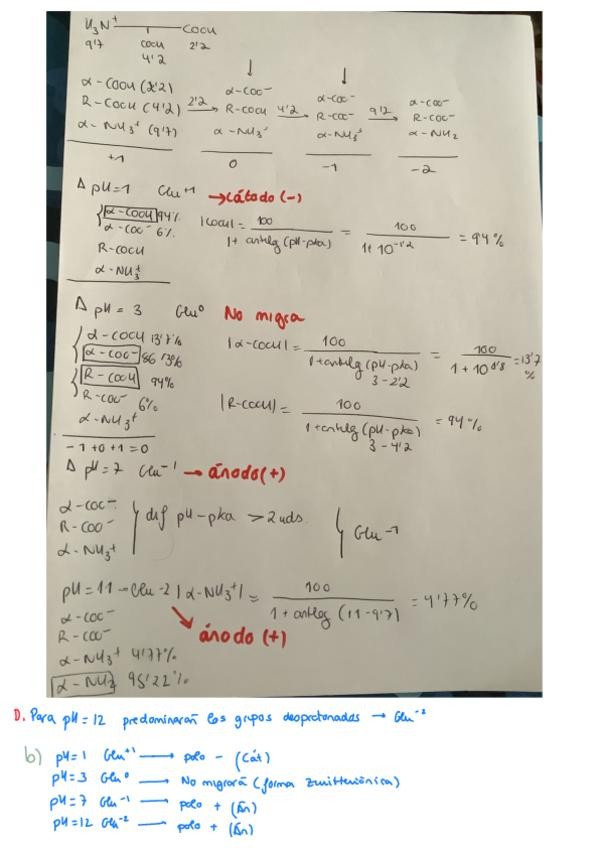 H₃N⁺ COOH
9'7 COOH 2'2
4'2
α-COOH (2'2)
R-COOH (4'2) 2'2→
α-NH₃⁺ (9'7)
+1
↓
α-COO⁻
R-COOH 4'2→
α-NH₃⁺
0
↓
α-COO⁻
R-COO⁻ 9'2→
α-NH₃⁺
-1
α-COO⁻
R-COO⁻
α-NH₂
-2
Δ pH=1 Glu⁺¹ →Cátodo (-)
α-COOH 94%
α-COO⁻ 6%
R-COOH
α-NH₃⁺
|COOH| = 100 / 1+ antilg (pH-pka) = 100 / 1+ 10⁻¹'² = 94%
Δ pH = 3 Glu⁰ No migra
α-COOH 13'7%
α-COO⁻ 86'3%
R-COOH 94%
R-COO⁻ 6%
α-NH₃⁺
-1+0+1=0
|α-COOH| = 100 / 1+antilg (pH-pka) 3-2'2 = 100 / 1+10⁰'⁸ = 13'7 %
|R-COOH| = 100 / 1+antilg (pH-pka) 3-4'2 = 94%
Δ pH=7 Glu⁻¹ → ánodo(+)
α-COO⁻
R-COO⁻
α-NH₃⁺
dif pH-pka > 2uds.
Glu⁻¹
pH=11→Glu⁻² |α-NH₃⁺| = 100 / 1+antlog (11-9'7) = 4'77%
ánodo (+)
α-COO⁻
R-COO⁻
α-NH₃⁺ 4'77%
α-NH₂ 95'22%
D. Para pH=12 predominarán los grupos desprotonados → Glu⁻²
b) pH=1 Glu⁺¹ → polo - (Cát)
pH=3 Glu⁰ → No migrará (forma zwitteriónica)
pH=7 Glu⁻¹ → polo + (Án)
pH=12 Glu⁻² → polo + (Án)